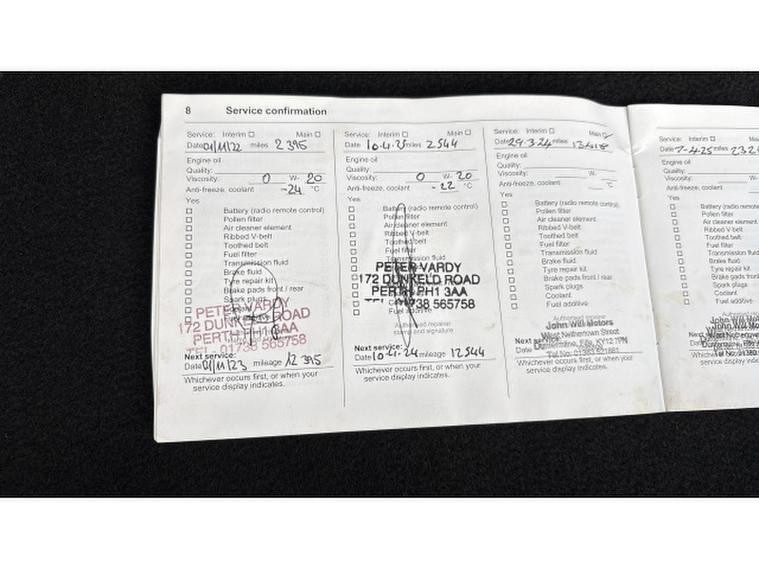 8 Service confirmation
Service: Interim Main
Date 01/11/22 miles 2395
Engine oil
Quality:
Viscosity: 0 W- 20
Anti-freeze, coolant -24 °C
Yes
Battery (radio remote control)
Pollen filter
Air cleaner element
Ribbed V-belt
Toothed belt
Fuel filter
Transmission fluid
Brake fluid
Tyre repair kit
Brake pads front / rear
Spark plugs
Coolant
PETER VARDY
172 DUNKELD ROAD
PERTH PH1 3AA
TEL: 01738 565758
Next service:
Date 01/11/23 mileage 12395
Whichever occurs first, or when your
service display indicates.
Service: Interim Main
Date 10.4. miles 2544
Engine oil
Quality:
Viscosity: 0 W- 20
Anti-freeze, coolant -22 °C
Yes
Battery (radio remote control)
Pollen filter
Air cleaner element
Ribbed V-belt
Toothed belt
Fuel filter
Transmission fluid
PETER VARDY
172 DUNKELD ROAD
PERTH PH1 3AA
01738 565758
Fuel additive
Authorised repairer
stamp and signature
Next service:
Date 10.4.24 mileage 12544
Whichever occurs first, or when your
service display indicates.
Service: Interim Main
Date 29.3.24 miles
Engine oil
Quality:
Viscosity: W-
Anti-freeze, coolant °C
Yes
Battery (radio remote control)
Pollen filter
Air cleaner element
Ribbed V-belt
Toothed belt
Fuel filter
Transmission fluid
Brake fluid
Tyre repair kit
Brake pads front / rear
Spark plugs
Coolant
Fuel additive
Authorised repairer
John Will Motors
West Netherton Street
Next service:
Date Dunfermline, Fife, KY12 7PN
Tel No: 01383 621881
Whichever occurs first, or when your
service display indicates.
Service: Interim
Date 7-4-25 miles
Engine oil
Quality:
Viscosity:
Anti-freeze, coolant
Yes
Battery (radio remote
Pollen filter
Air cleaner element
Ribbed V-belt
Toothed belt
Fuel filter
Transmission fluid
Brake fluid
Tyre repair kit
Brake pads front /
Spark plugs
Coolant
Fuel additive
John Will
Next service:
Date
Whichever occurs first,
service display indicates.